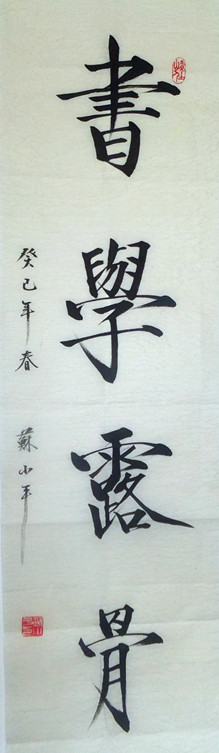 書學露骨
癸巳年春 蘇小平